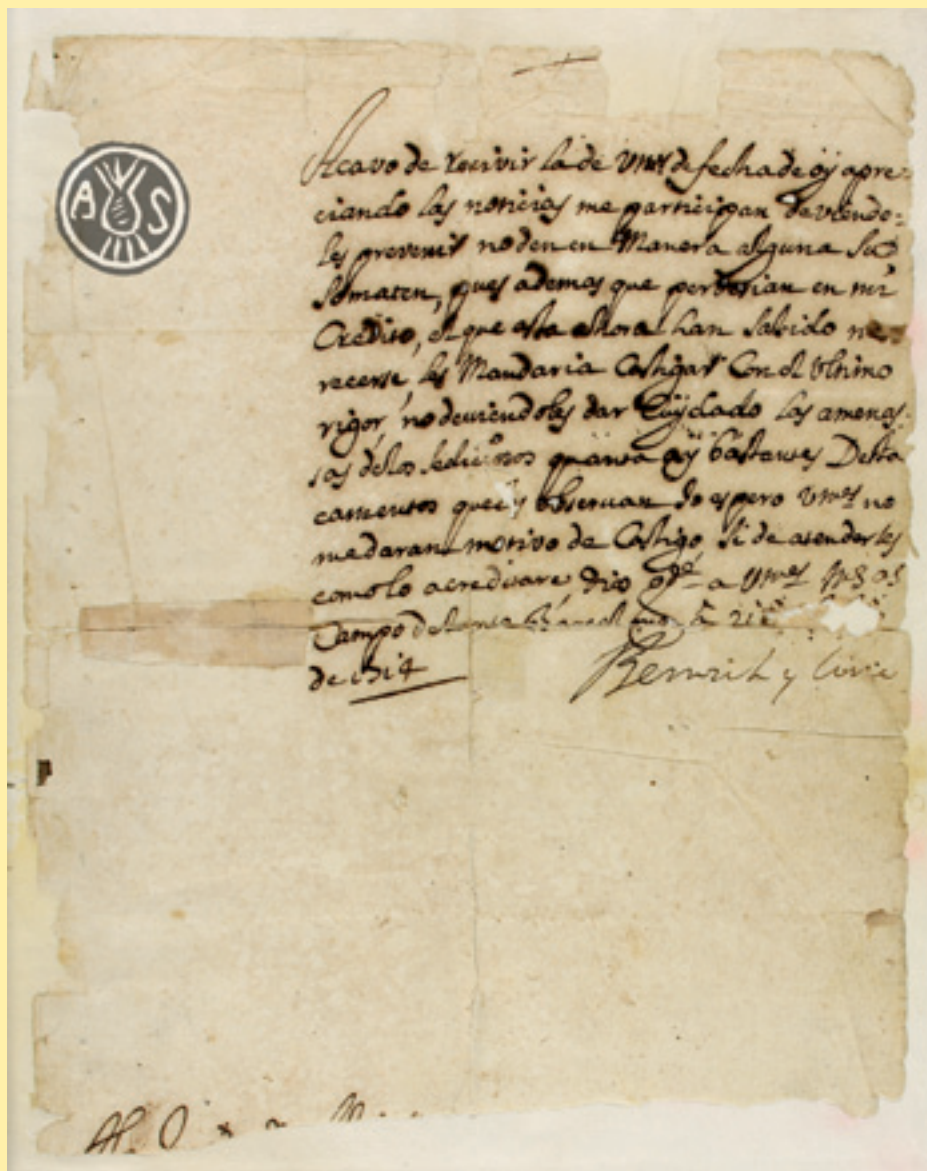 A S
Acavo de recivir la de Vmes de fecha de oÿ apre-
ciando las noticias me participan deviendo-
les prevenir no den en Manera alguna su
Somaten, pues ademas que perderian en mi
Credito, el que asta ahora han sabido me-
recerse, les Mandaria Castigar Con el Vltimo
rigor, no deviendoles dar Cuÿdado las amenas-
sas delos sediciosos quanta aÿ bastantes Desta
camentos que observan Yo espero Vmes no
me daran motivo de Castigo, si de atenderles
como lo acreditare, Dios gde a Vmes ms as
Campo de 21
de 1714